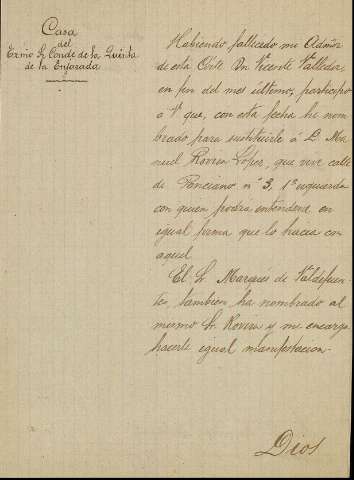 Casa
del
Exmo Sr. Conde de la Quinta
de la Enjarada
Habiendo fallecido mi Admor
de esta Corte Dn Vicente Valledor,
en fin del mes ultimo, participo
a V que, con esta fecha he nom
brado para sustituirle á D. Ma
nuel Rovira Lopez, que vive calle
de Ponciano nº 3, 1º izquierda
con quien podra entenderse en
igual forma que lo hacia con
aquel.
El Sr. Marqués de Valdefuen-
tes, tambien ha nombrado al
mismo Sr. Rovira y me encarga
hacerle igual manifestacion.
Dios